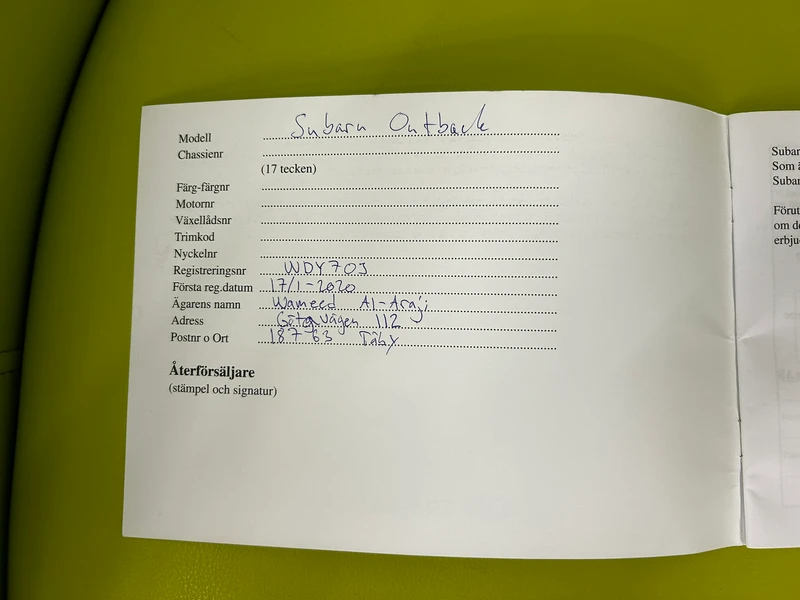 Modell Subaru Outback
Chassienr
(17 tecken)
Färg-färgnr
Motornr
Växellådsnr
Trimkod
Nyckelnr
Registreringsnr WDY70J
Första reg.datum 17/1-2020
Ägarens namn Wameed Al-Araji
Adress Götavägen 112
Postnr o Ort 187-63 Täby
Återförsäljare
(stämpel och signatur)
Subar
Som ä
Subar
Förut
om de
erbju